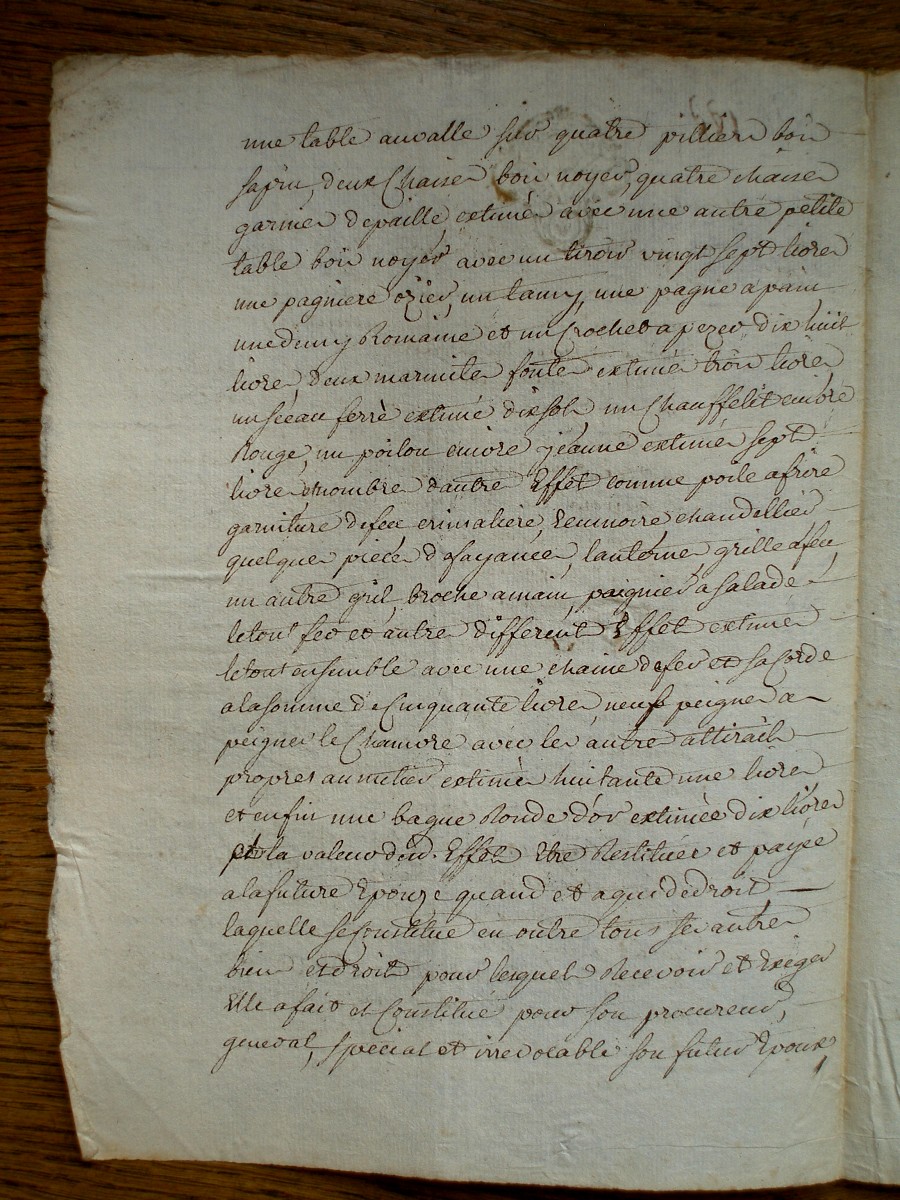 une table auvalle sur quatre pilliers bois
sapin, deux Chaises bois noyer, quatre chaises
garnies de paille, extimés avec une autre petite
table bois noyer avec un tiroir vingt sept livres
une pagniere ozier, un tamy, une pagne a pain
une demy Romaine et un Crochet a pezer dix huit
livres, deux marmites fonte extimés trois livres
un sceau ferrè extimé dix sols, un Chauffelit cuivre
Rouge, un poilon cuivre jeaune extimés sept
livres nombre dautre Effet comme poile afrire
garniture de feu crimaliere, chandellier
quelque pieces d fayance, lanterne, grille a feu
un autre gril, broche amain, paignier a salade
le tout fer et autre different Effet extimés
le tout ensemble avec une chaine de fer et sa Corde
a la somme de Cinquante livres, neuf peignes a
peigner le Chanvre avec les autre attirails
propres au metier extimés huitante une livres
et enfin une bague Ronde d'or extimée dix livres
la valeur desd. Effet Etre Restituer et payée
a la future Epouze quand et a qui de droit
laquelle se Constitue en outre tous ses autres
bien et droit pour lesquels Recevoir et Exiger
Elle a fait et Constitue pour son procureur
general, special et irrevocable son futur Epoux